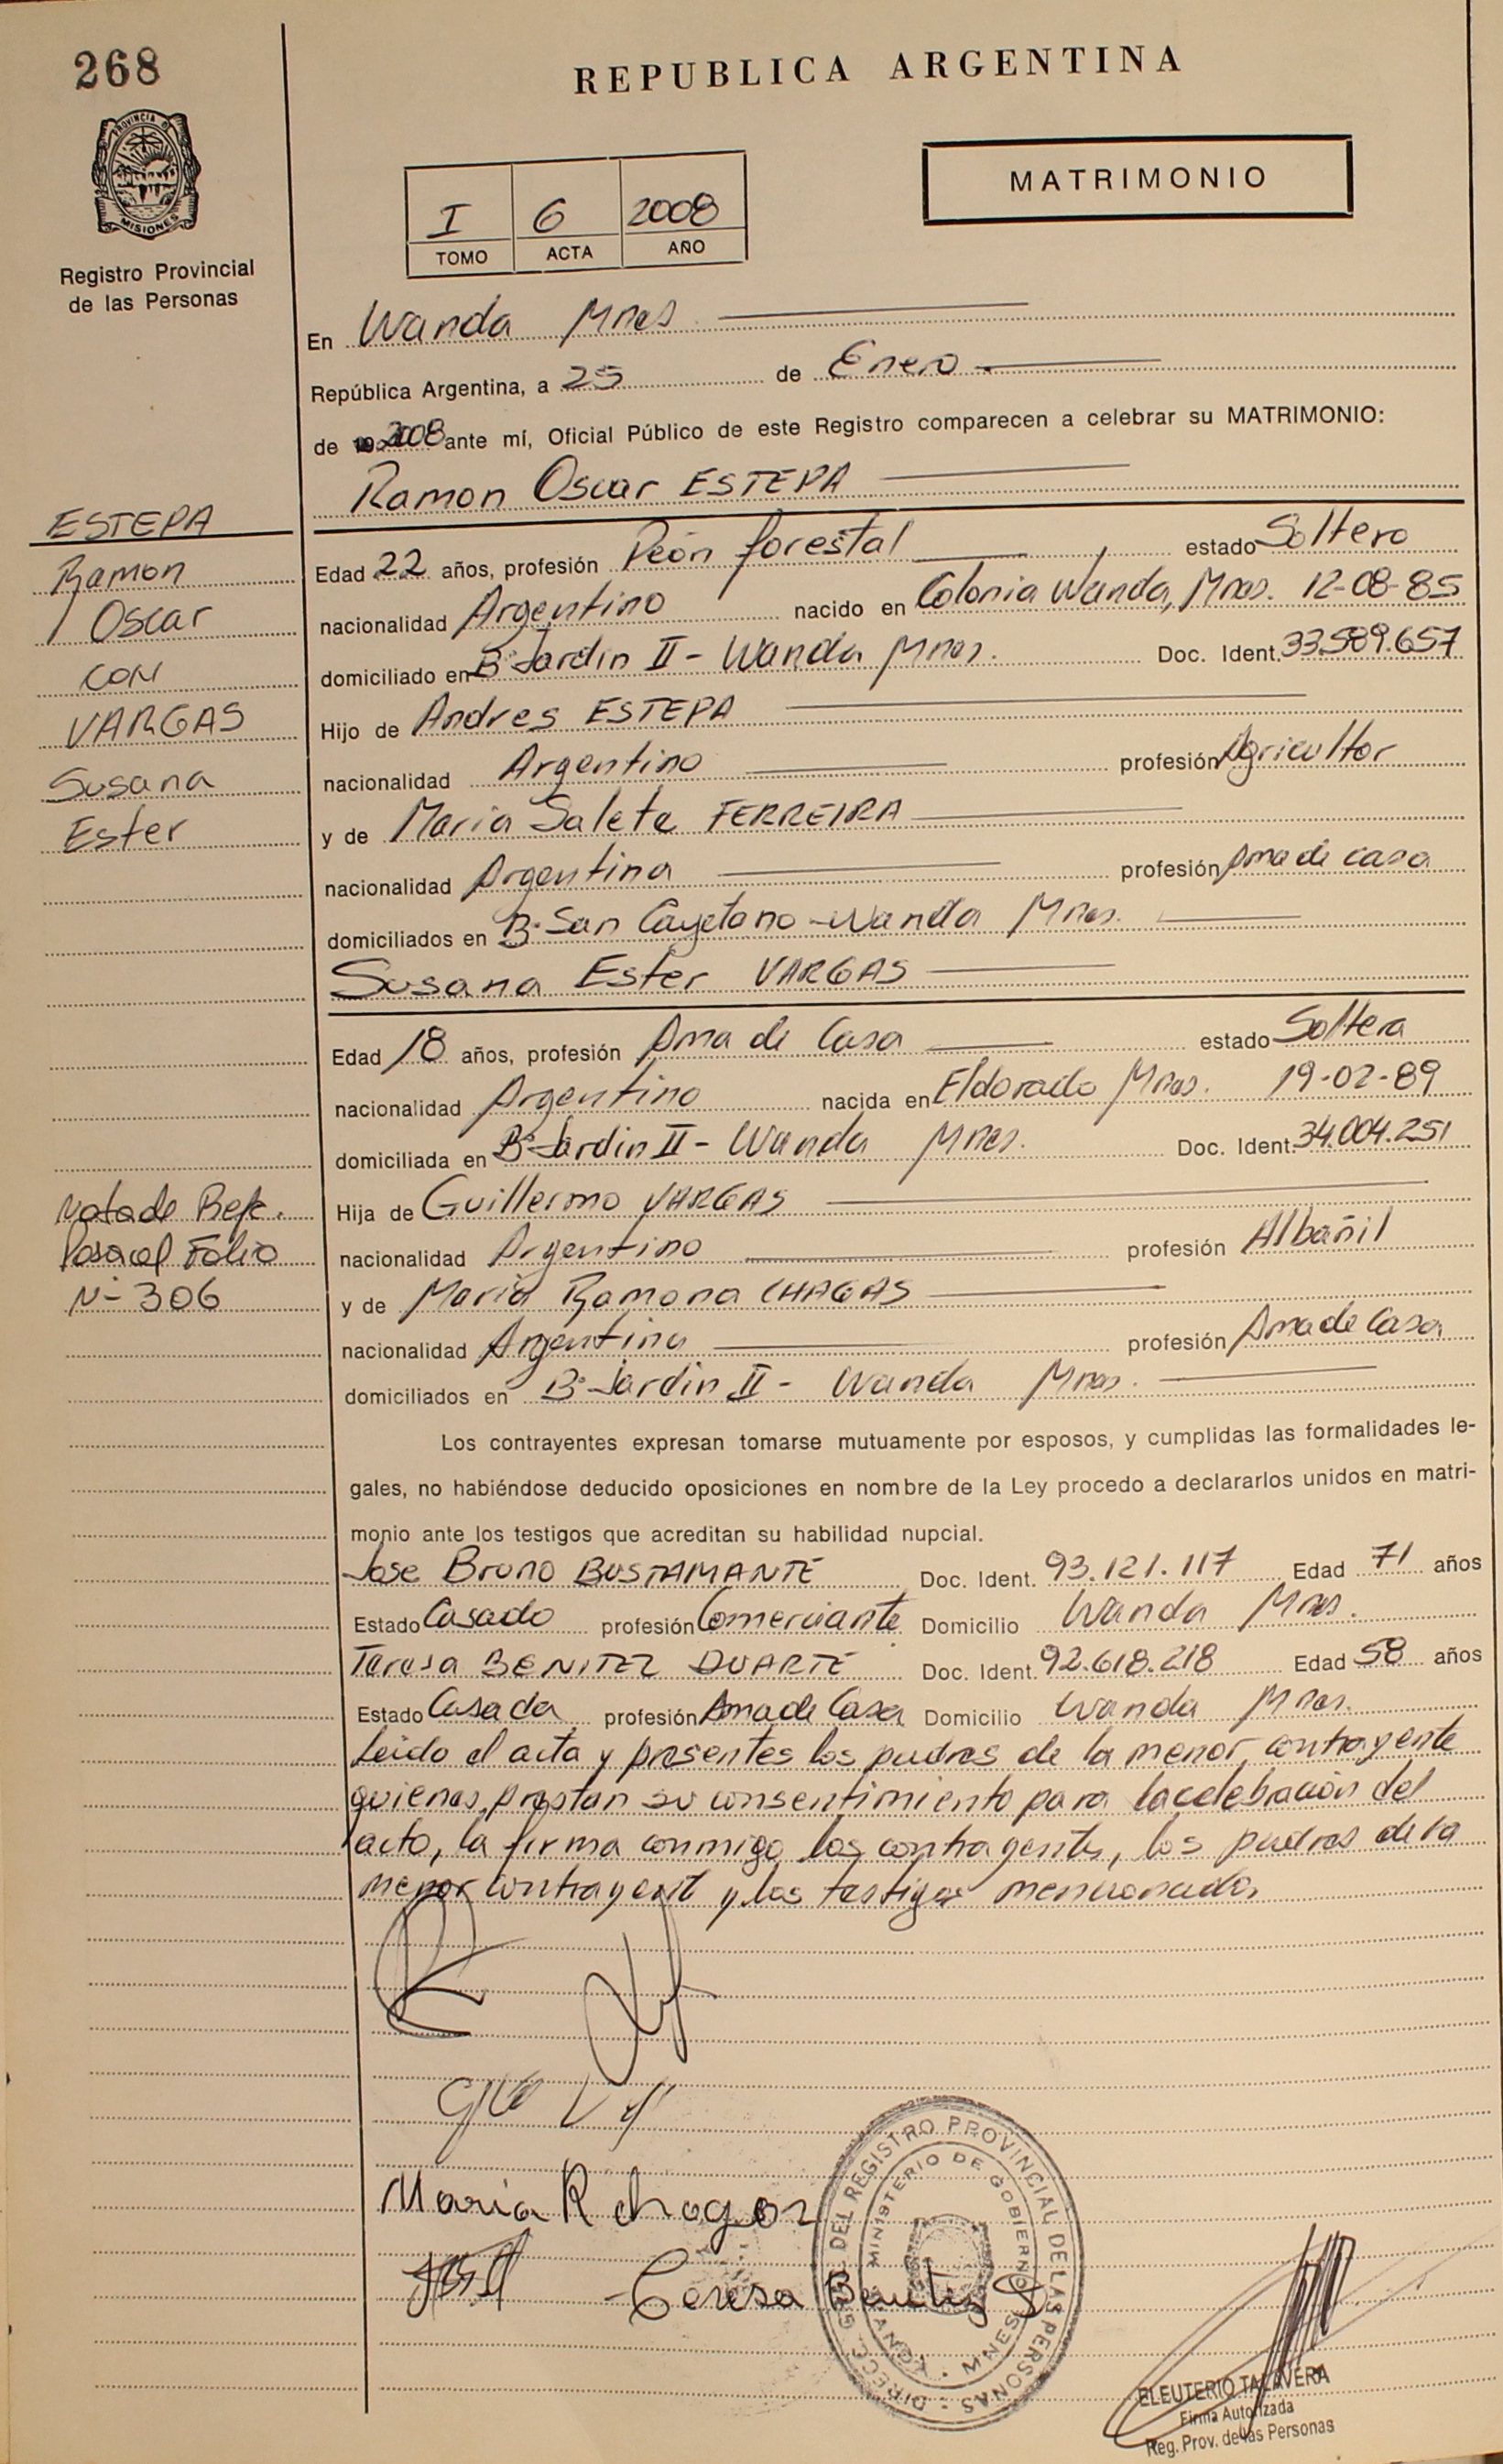 268
REPUBLICA ARGENTINA
PROVINCIA DE
MISIONES
Registro Provincial
de las Personas
I 6 2008
TOMO ACTA AÑO
MATRIMONIO
En Wanda Mnes
República Argentina, a 25 de Enero
de 2008 ante mí, Oficial Público de este Registro comparecen a celebrar su MATRIMONIO:
Ramon Oscar ESTEPA
ESTEPA
Ramon
Oscar
CON
VARGAS
Susana
Ester
Edad 22 años, profesión Peón forestal estado Soltero
nacionalidad Argentino nacido en Colonia Wanda, Mnes. 12-08-85
domiciliado en Bº Jardin II - Wanda Mnes. Doc. Ident. 33.589.657
Hijo de Andres ESTEPA
nacionalidad Argentino profesión Agricultor
y de Maria Salete FERREIRA
nacionalidad Argentina profesión Ama de casa
domiciliados en Bº San Cayetano - Wanda Mnes.
Susana Ester VARGAS
Edad 18 años, profesión Ama de Casa estado Soltera
nacionalidad Argentino nacida en Eldorado Mnes. 19-02-89
domiciliada en Bº Jardin II - Wanda Mnes. Doc. Ident. 34.004.251
Hija de Guillermo VARGAS
nacionalidad Argentino profesión Albañil
y de Maria Ramona CHAGAS
nacionalidad Argentina profesión Ama de Casa
domiciliados en Bº Jardin II - Wanda Mnes.
Nota de Refe.
Pasa al Folio
Nº 306
Los contrayentes expresan tomarse mutuamente por esposos, y cumplidas las formalidades le-
gales, no habiéndose deducido oposiciones en nombre de la Ley procedo a declararlos unidos en matri-
monio ante los testigos que acreditan su habilidad nupcial.
Jose Bruno BUSTAMANTE Doc. Ident. 93.121.117 Edad 71 años
Estado Casado profesión Comerciante Domicilio Wanda Mnes.
Teresa BENITEZ DUARTE Doc. Ident. 92.618.218 Edad 58 años
Estado Casada profesión Ama de Casa Domicilio Wanda Mnes.
Leido el acta y presentes los padres de la menor contrayente
quienes prestan su consentimiento para la celebración del
acto, la firma conmigo los contrayentes, los padres de la
menor contrayente y los testigos mencionados
Maria R chagas
Teresa Benitez D
DIRECC. GRAL. DEL REGISTRO PROVINCIAL DE LAS PERSONAS
MINISTERIO DE GOBIERNO
WANDA - MNES.
ELEUTERIO TALAVERA
Firma Autorizada
Reg. Prov. de las Personas